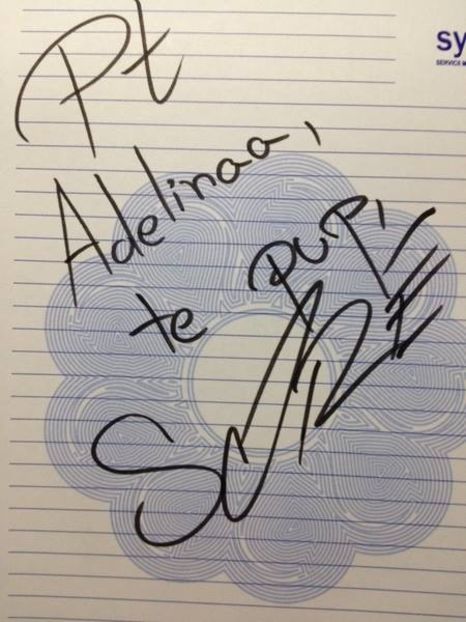 sy
SERVICE
Pt
Adelinaa,
te pup!